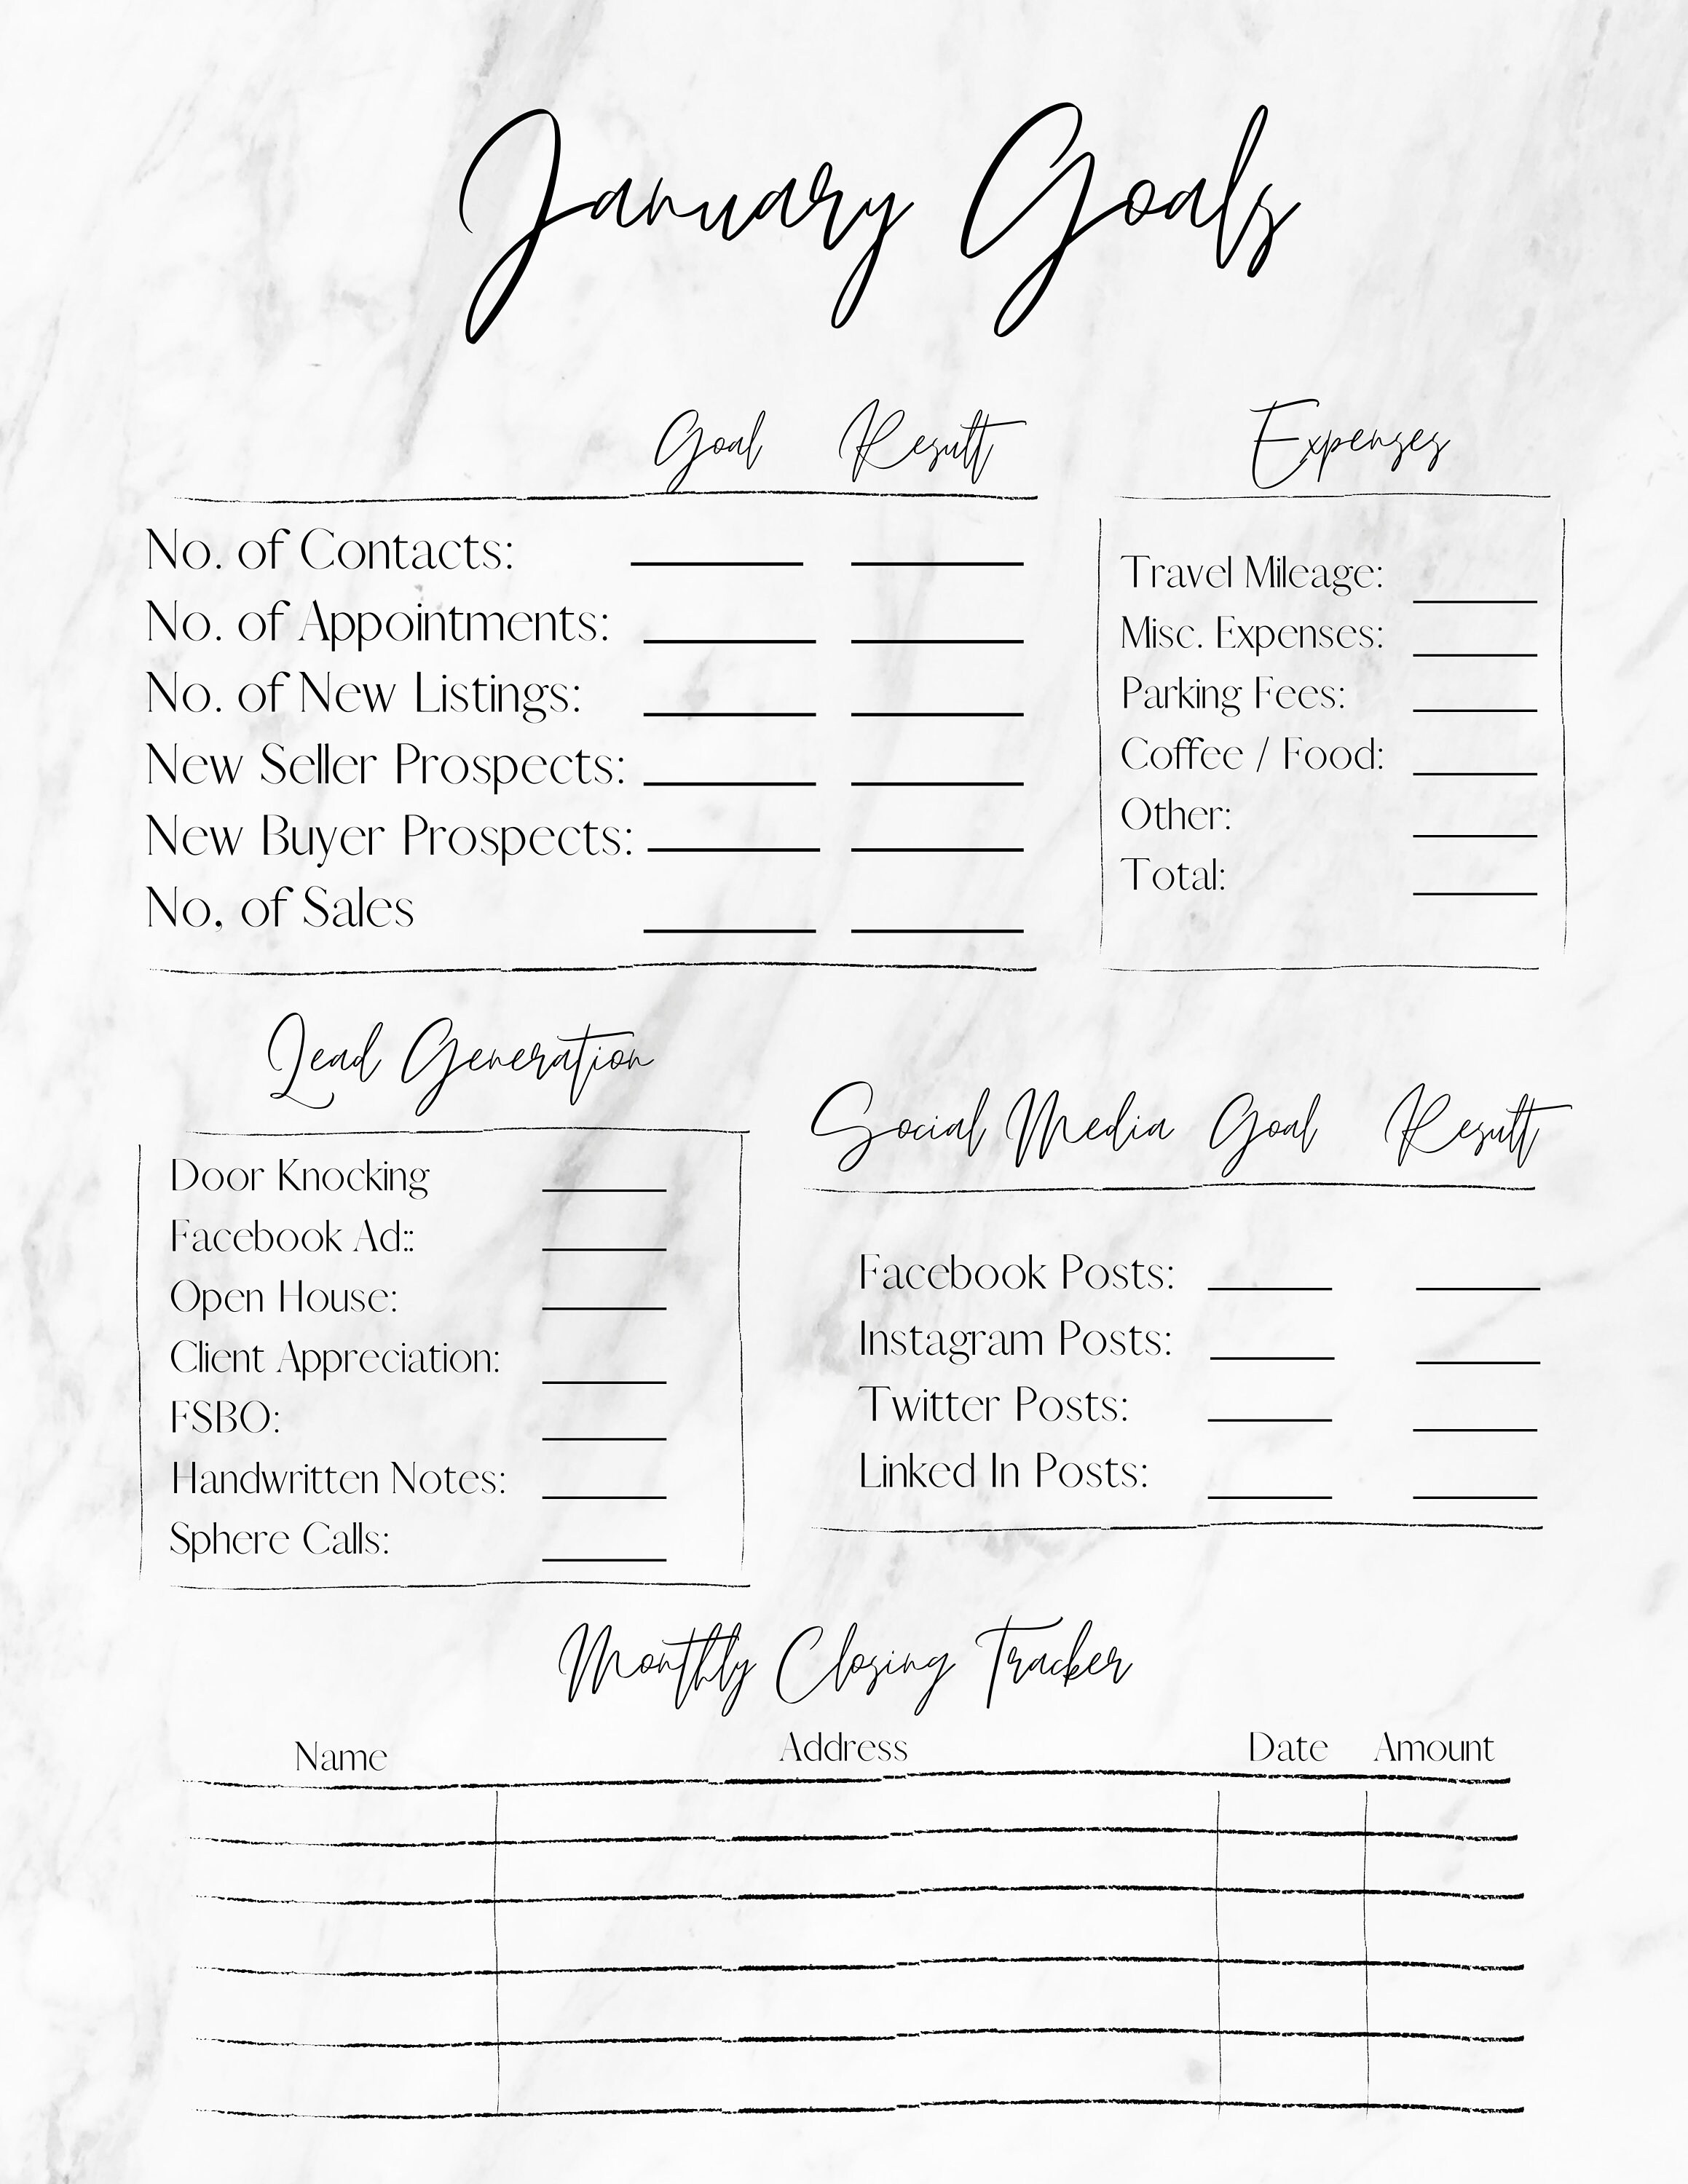 January Goals
Goal Result
No. of Contacts:
No. of Appointments:
No. of New Listings:
New Seller Prospects:
New Buyer Prospects:
No, of Sales
Expenses
Travel Mileage:
Misc. Expenses:
Parking Fees:
Coffee / Food:
Other:
Total:
Lead Generation
Door Knocking
Facebook Ad::
Open House:
Client Appreciation:
FSBO:
Handwritten Notes:
Sphere Calls:
Social Media Goal Result
Facebook Posts:
Instagram Posts:
Twitter Posts:
Linked In Posts:
Monthly Closing Tracker
Name Address Date Amount